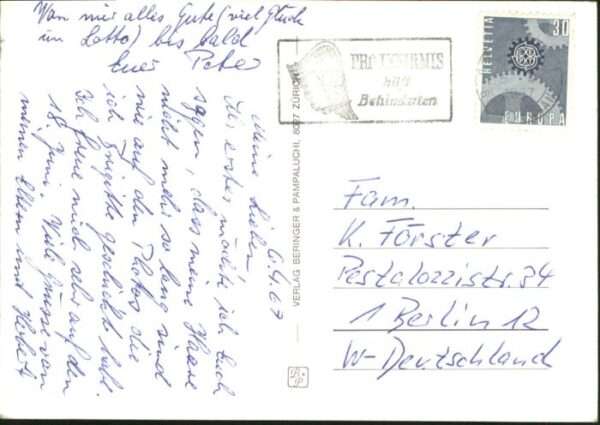 6.4.67
Meine Lieben,
Als erstes möchte ich Euch
sagen, dass meine Haare
nicht mehr so lang sind
wie auf den Photos die
ich Brigitte geschickt hab.
Ich freue mich sehr auf den
18. Juni. Viele Grüsse von
meinen Eltern und Herbert
Von mir alles Gute (viel Glück
im Lotto) bis bald
Euer Peter
VERLAG BERINGER & PAMPALUCHI, 8027 ZÜRICH
PRO INFIRMIS
hilft
Behinderten
30
HELVETIA
EUROPA
Fam.
K. Förster
Pestalozzistr. 34
1 Berlin 12
W-Deutschland
B.P